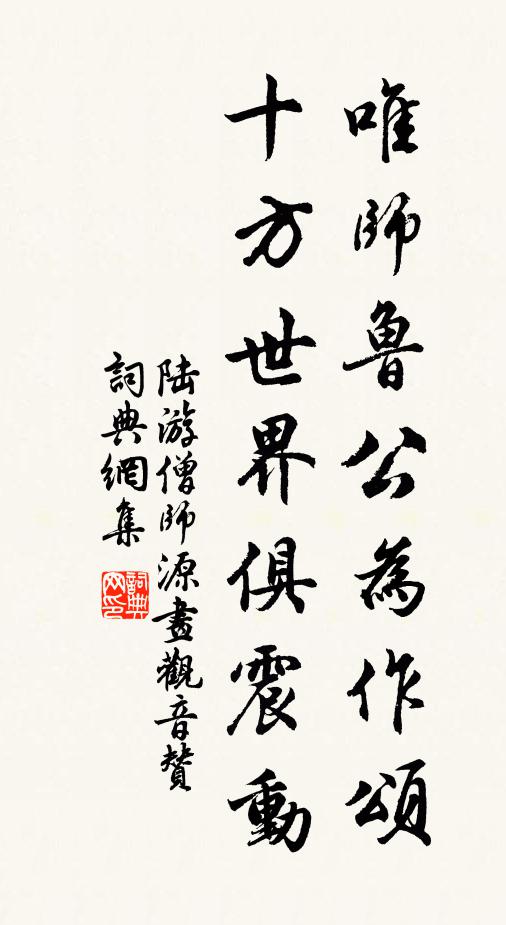 唯師魯公為作頌
十方世界俱震動
陸游僧師源畫觀音贊
詞典網集
詞典网印